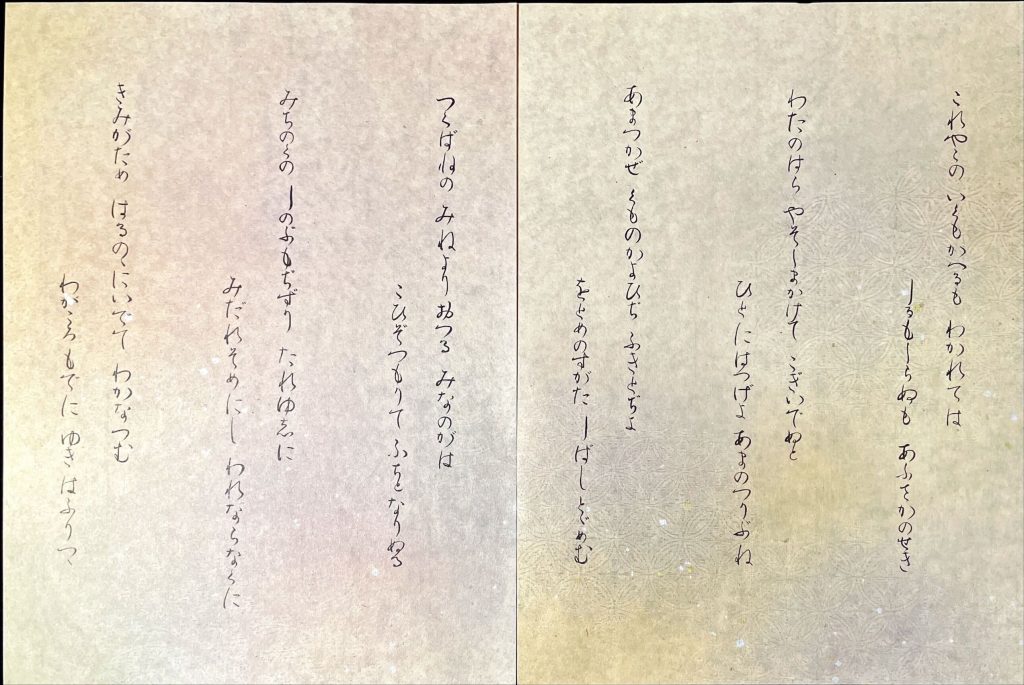 これやこの いくもかへるも わかれては
しるもしらぬも あふさかのせき
わたのはら やそしまかけて こぎいでぬと
ひとにはつげよ あまのつりぶね
あまつかぜ くものかよひぢ ふきとぢよ
をとめのすがた しばしとゞめむ
つくばねの みねより おつる みなのがは
こひぞつもりて ふちとなりぬる
みちのくの しのぶもぢずり たれゆゑに
みだれそめにし われならなくに
きみがため はるのゝにいでて わかなつむ
わがころもでに ゆきはふりつゝ